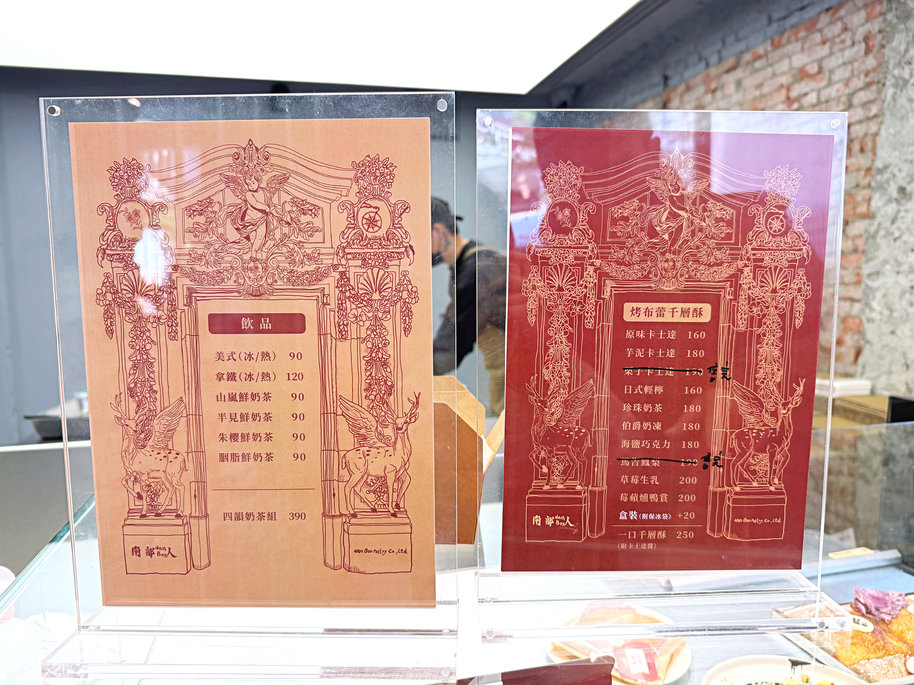 飲品
美式(冰/熱) 90
拿鐵(冰/熱) 120
山嵐鮮奶茶 90
半見鮮奶茶 90
朱櫻鮮奶茶 90
胭脂鮮奶茶 90
四韻奶茶組 390
南部人
烤布蕾千層酥
原味卡士達 160
芋泥卡士達 180
栗子卡士達 190 售完
日式輕檸 160
珍珠奶茶 180
伯爵奶凍 180
海鹽巧克力 180
馬告鳳梨 190 售完
草莓生乳 200
莓蘋燻鴨賞 200
盒裝(附保冰袋) +20
一口千層酥 250
(附卡士達醬)
南部人